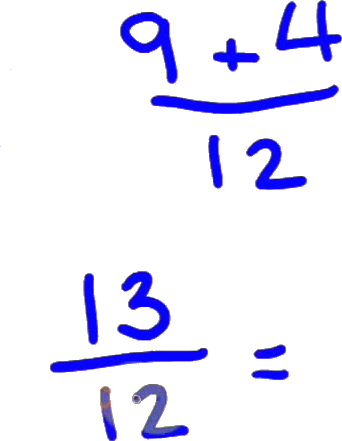 9 + 4
12
13
12 =